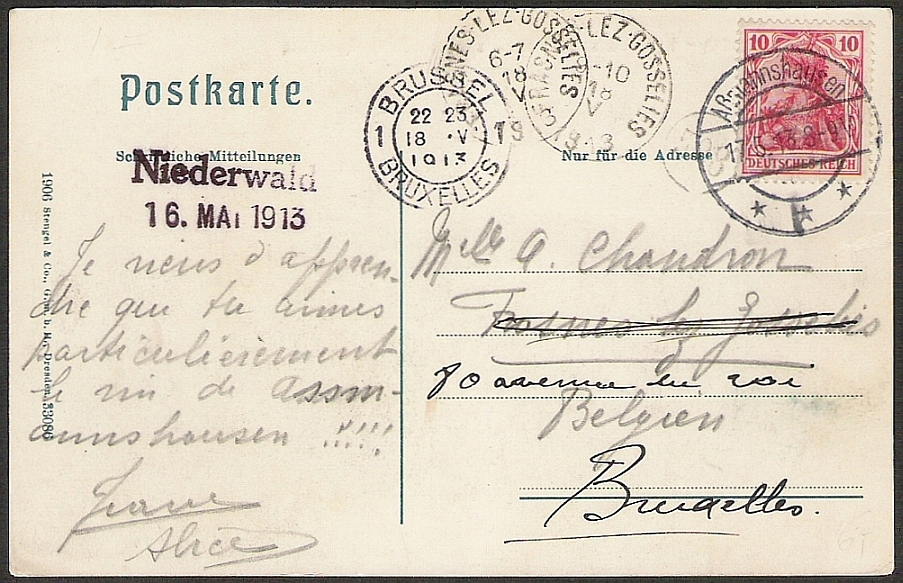 Postkarte.
Schriftliche Mitteilungen
Nur für die Adresse
Niederwald
16. MAI 1913
BRUSSEL
1 22 23 1
18 V 13
1913
BRUXELLES
FRASNES-LEZ-GOSSELIES
6-7
18
V
FRASNES-LEZ-GOSSELIES
-10
18
V
1913
10 10
DEUTSCHES REICH
Aßmannshausen
1906 Stengel & Co., G.m.b.H., Dresden 33086
Je viens d'appren-
dre que tu aimes
particulièrement
le vin de Assm-
annshausen !!!!!
Alice
Melle A. Chaudron
Frasnes lez Gosselies
80 avenue du roi
Belgien
Bruxelles.